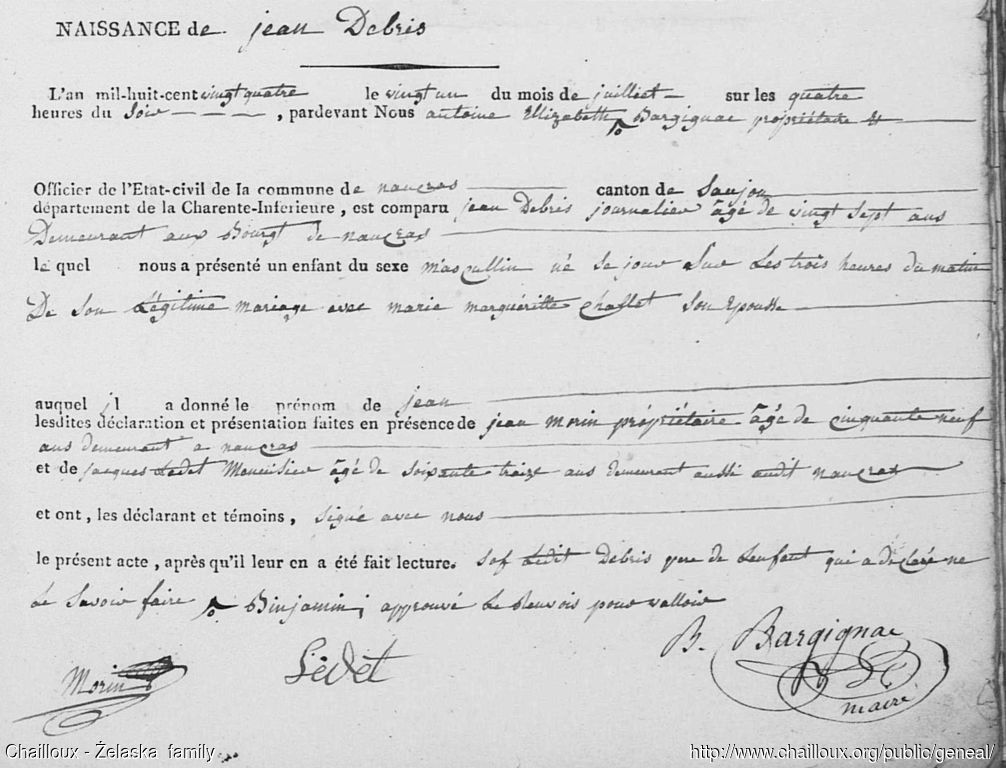 NAISSANCE de jean Debris
L'an mil-huit-cent vingt quatre le vingt un du mois de juilliet sur les quatre
heures du Soir, pardevant Nous antoine Ellizabeth Bargignac propriétaire &
Officier de l'Etat-civil de la commune de nancras canton de Saujon
département de la Charente-Inferieure, est comparu jean Debris journalier âgé de vingt Sept ans
Demeurant aux Bourgt de nancras
le quel nous a présenté un enfant du sexe mascullin né Se jour Sur Les trois heures du matin
De Son Légitime mariage avec marie marguéritte Chaslet Son Epousse
auquel il a donné le prénom de jean
lesdites déclaration et présentation faites en présence de jean morin propriétaire âgé de cinquante neuf
ans demeurant a nancras
et de jacques Ledet Menuisier âgé de Soixante treize ans demeurant aussi audit nancras
et ont, les déclarant et témoins, Signé avec nous
le présent acte, après qu'il leur en a été fait lecture. Sof Ledit Debris pere de Lenfant qui a déClaré ne
Le Savoir faire Binjamin; approuvé Le Renvois pour valloir
Morin
Lédet
B. Bargignac
maire
Chailloux - Żelaska family
http://www.chailloux.org/public/geneal/